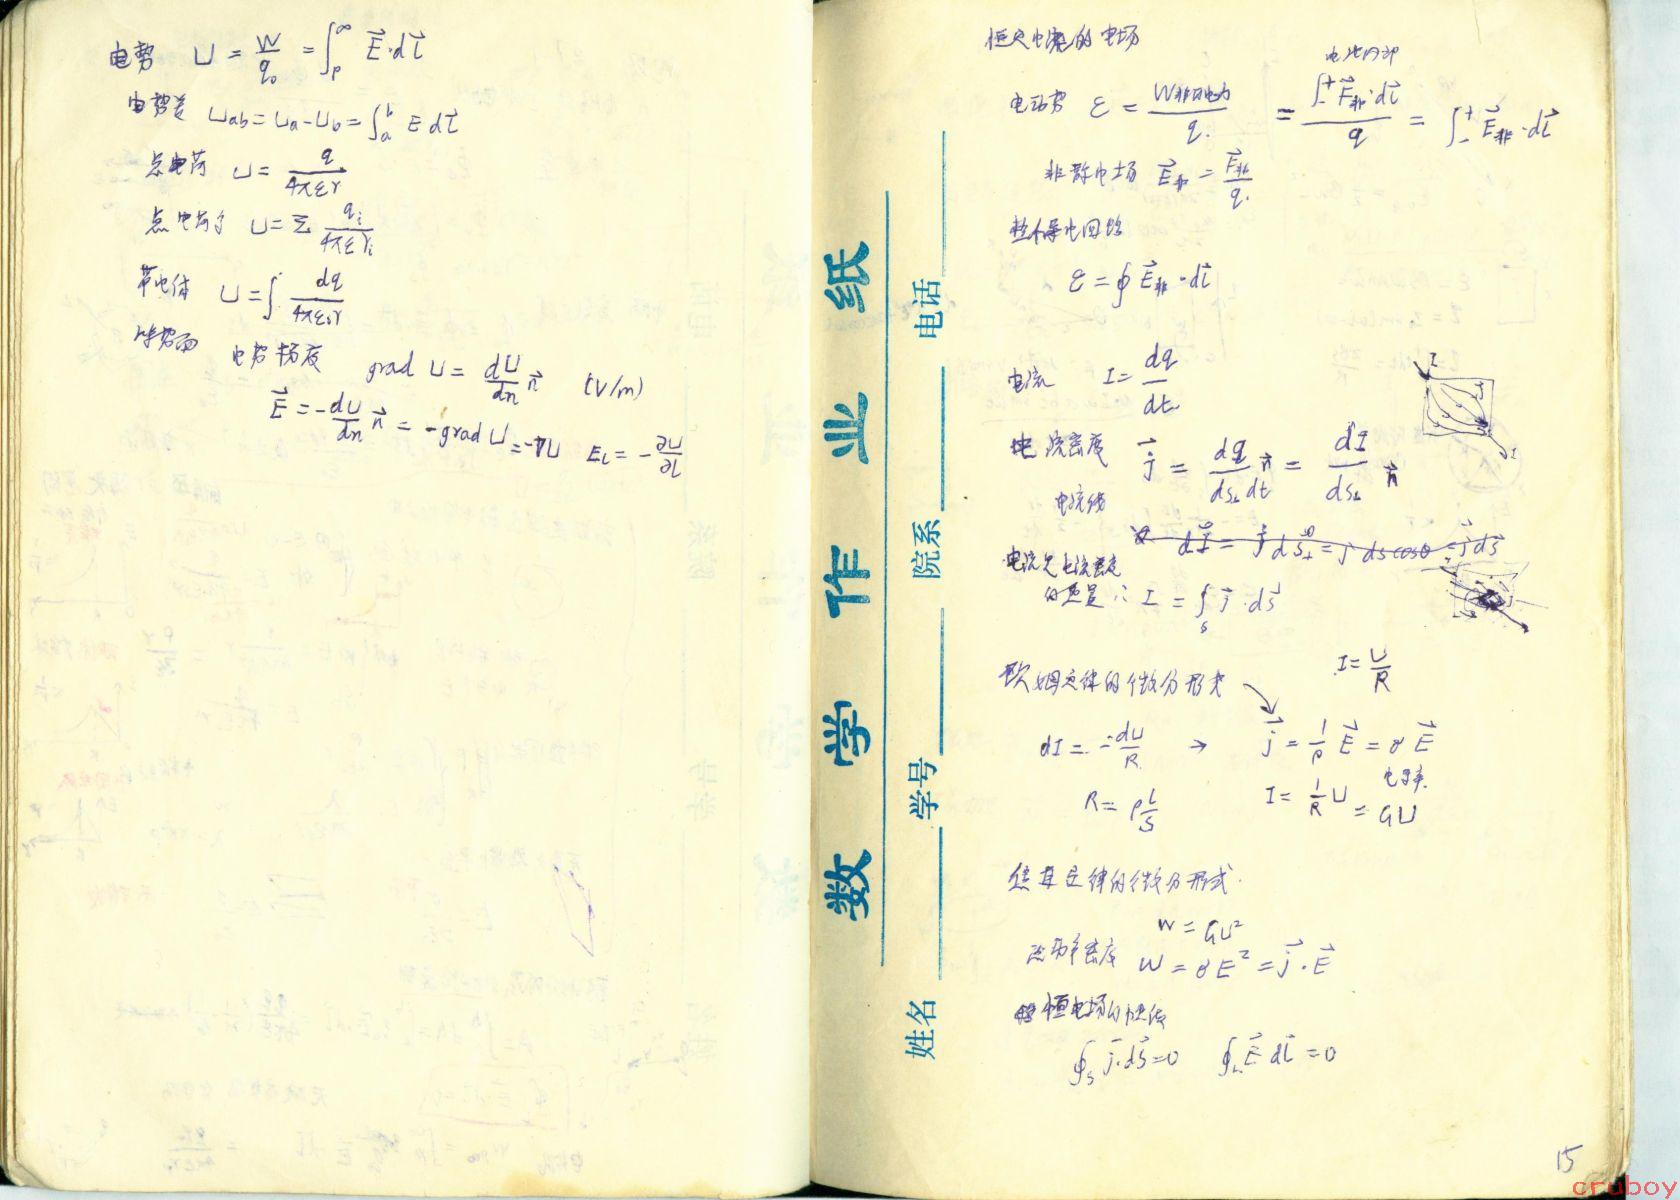 电势 U = W/q₀ = ∫ₚ^∞ E⃗·dl⃗
电势差 Uab = Ua - Ub = ∫ₐᵇ E dl⃗
点电荷 U = q/4πεr
点电荷 U = Σ qᵢ/4πεrᵢ
带电体 U = ∫ dq/4πε₀r
等势面
电势梯度 grad U = dU/dn n⃗ (V/m)
E⃗ = -dU/dn n⃗ = -grad U = -∇U E_L = -∂U/∂L
数学作业纸
姓名 学号 院系 电话
恒定电流的电场
电池内部
电动势 ε = W非静电力/q = ∫₋⁺ F⃗非·dl⃗/q = ∫₋⁺ E⃗非·dl⃗
非静电场 E⃗非 = F⃗非/q
整个导电回路
ε = ∮ E⃗非·dl⃗
电流 I = dq/dt
I
I
电流密度 j⃗ = dq/ds⊥dt n⃗ = dI/ds⊥ n⃗
电流线
dI = j dS⊥ = j ds cosθ = j⃗ds⃗
电流是电流密度
的通量 ∴ I = ∫s j⃗·ds⃗
I = U/R
欧姆定律的微分形式
dI = -dU/R → j⃗ = 1/ρ E⃗ = σE⃗
电导率
R = ρ l/S I = 1/R U = GU
焦耳定律的微分形式
W = GU²
热功率密度 W = σE² = j⃗·E⃗
恒电场的性质
∮s j⃗·ds⃗ = 0 ∮L E⃗ dl⃗ = 0
15
cruboy